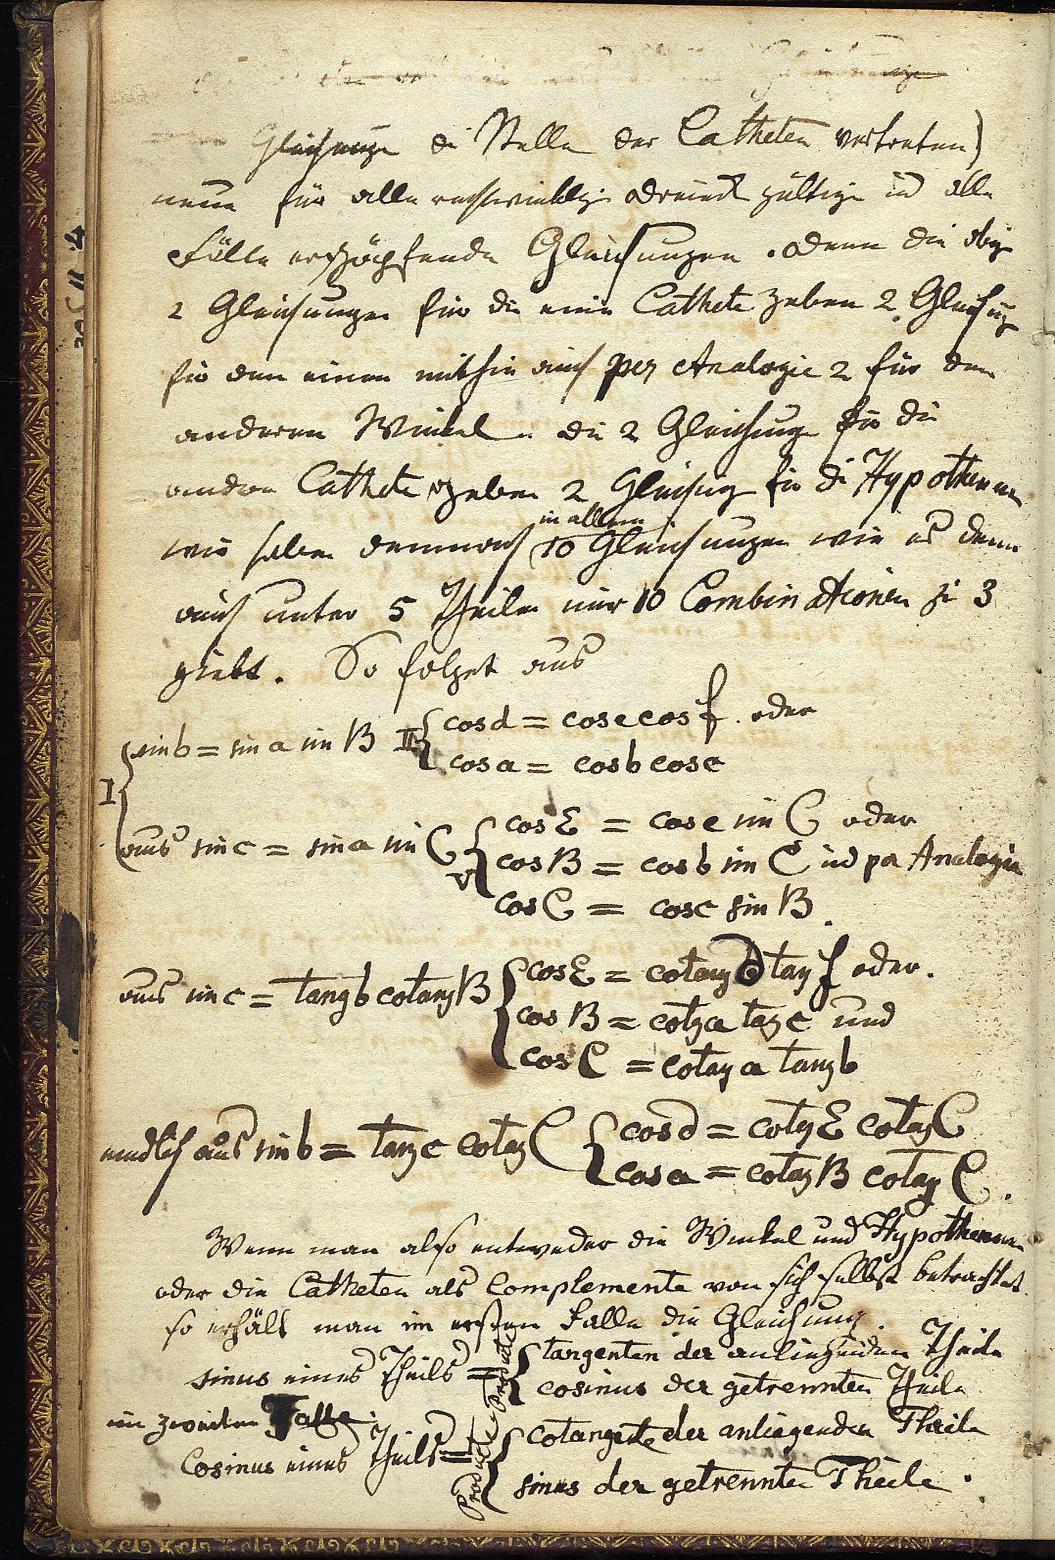 Gleichunge di Stelle der Catheten vertreten)
neue für alle rechtwinklige Dreieck gültige und alle
Fälle erschöpfende Gleichungen. Denn die obige
2 Gleichungen für die eine Cathete geben 2 Gleichung
für den einen mithin auch per Analogie 2 für den
anderen Winkel. die 2 Gleichunge für die
andre Cathete geben 2 Gleichung für di Hypothenuse
wir haben demnach 10 Gleichungen wie es denn
in allem
auch unter 5 Theilen nur 10 Combinationen zu 3
giebt. So folget aus
I { sin b = sin a sin B II { cos d = cos e cos f. oder
cos a = cos b cos c
aus sin c = sin a sin C V { cos E = cos e sin C oder
cos B = cos b sin C und per Analogie
cos C = cos c sin B.
aus sin c = tang b cotang B { cos E = cotang d tang f oder.
cos B = cotg a tag c und
cos C = cotag a tang b
endlich aus sin b = tang c cotag C { cos d = cotg E cotag C
cos a = cotag B cotag C.
Wenn man also entweder die Winkel und Hypothenuse
oder die Catheten als Complemente von sich selbst betrachtet
so erhält man im ersten Falle die Gleichung.
sinus eines Theils = Producte { tangenten der anliegenden Theile
cosinus der getrennten Theile
im zweiten Falle:
Cosinus eines Theils = Producte { cotangente der anliegenden Theile
sinus der getrennten Theile.